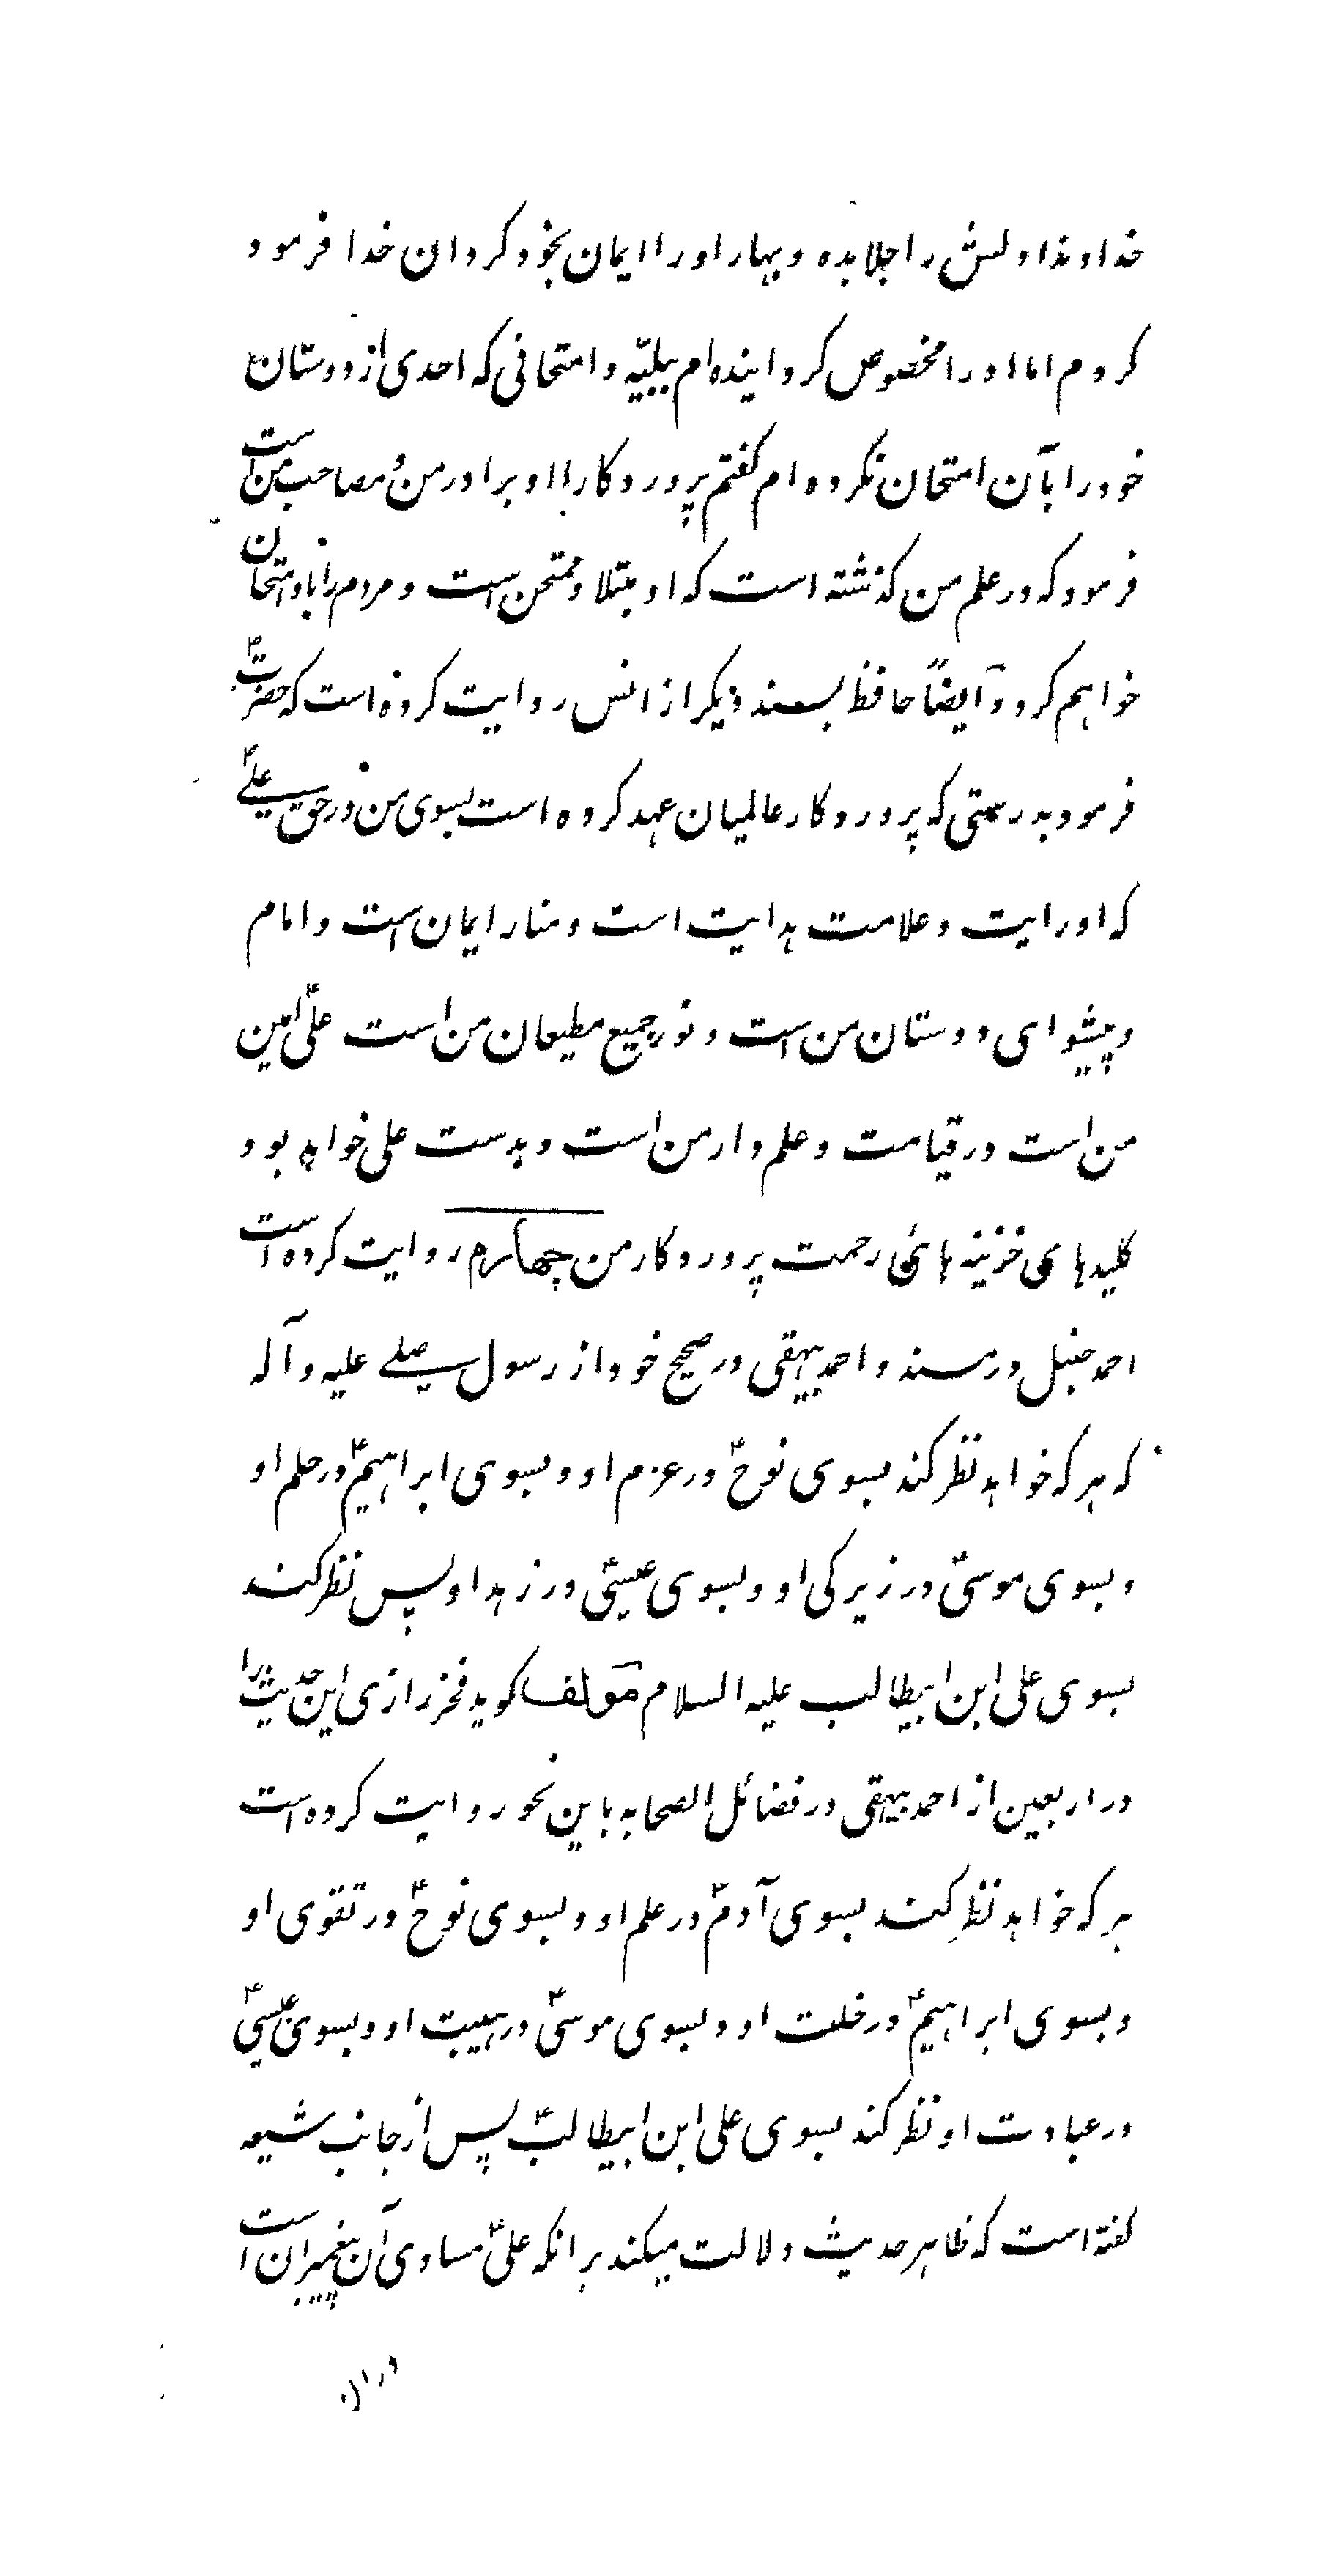 خداوندا دلش را جلا بده و بهار او را ایمان بخود کردان خدا فرمود
کردم اما او را مخصوص کردانیده ام ببلیّه و امتحانی که احدی از دوستان
خود را بآن امتحان نکرده ام کفتم پروردکارا او برادر من و مصاحب من است
فرمود که در علم من کذشته است که او مبتلا و ممتحن است و مردم را باو امتحان
خواهم کرد و آیضاً حافظ بسند دیکر از انس روایت کرده است که حضرتؐ
فرمود بدرستی که پروردکار عالمیان عهد کرده است بسوی من در حق علےؑ
که او رایت و علامت هدایت است و منار ایمان است و امام
و پیشوای دوستان من است و نور جمیع مطیعان من است علیؑ امین
من است در قیامت و علم دار من است و بدست علی خواهد بود
کلیدهای خزینه های رحمت پروردکار من چهارم روایت کرده است
احمد حنبل در مسند و احمد بیهقی در صحیح خود از رسول صلے علیه و آله
که هر که خواهد نظر کند بسوی نوحؑ در عزم او و بسوی ابراهیمؑ در حلم او
و بسوی موسیؑ در زیرکی او و بسوی عیسیؑ در زهد او پس نظر کند
بسوی علی ابن ابیطالب علیه السلام مؤلف کوید فخر رازی این حدیث را
در اربعین از احمد بیهقی در فضائل الصحابه باین نحو روایت کرده است
هر که خواهد نظر کند بسوی آدمؑ در علم او و بسوی نوحؑ در تقوی او
و بسوی ابراهیمؑ در خلت او و بسوی موسیؑ در هیبت او و بسوی عیسیؑ
در عبادت او نظر کند بسوی علی ابن ابیطالبؑ پس از جانب شیعه
کفته است که ظاهر حدیث دلالت میکند بر انکه علیؑ مساوی آن پیغمبران است
در ان